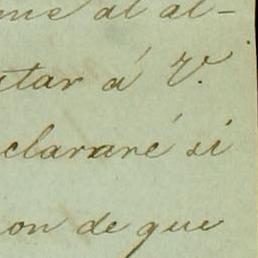 me al al-
tar á V.
clararé si
on de que